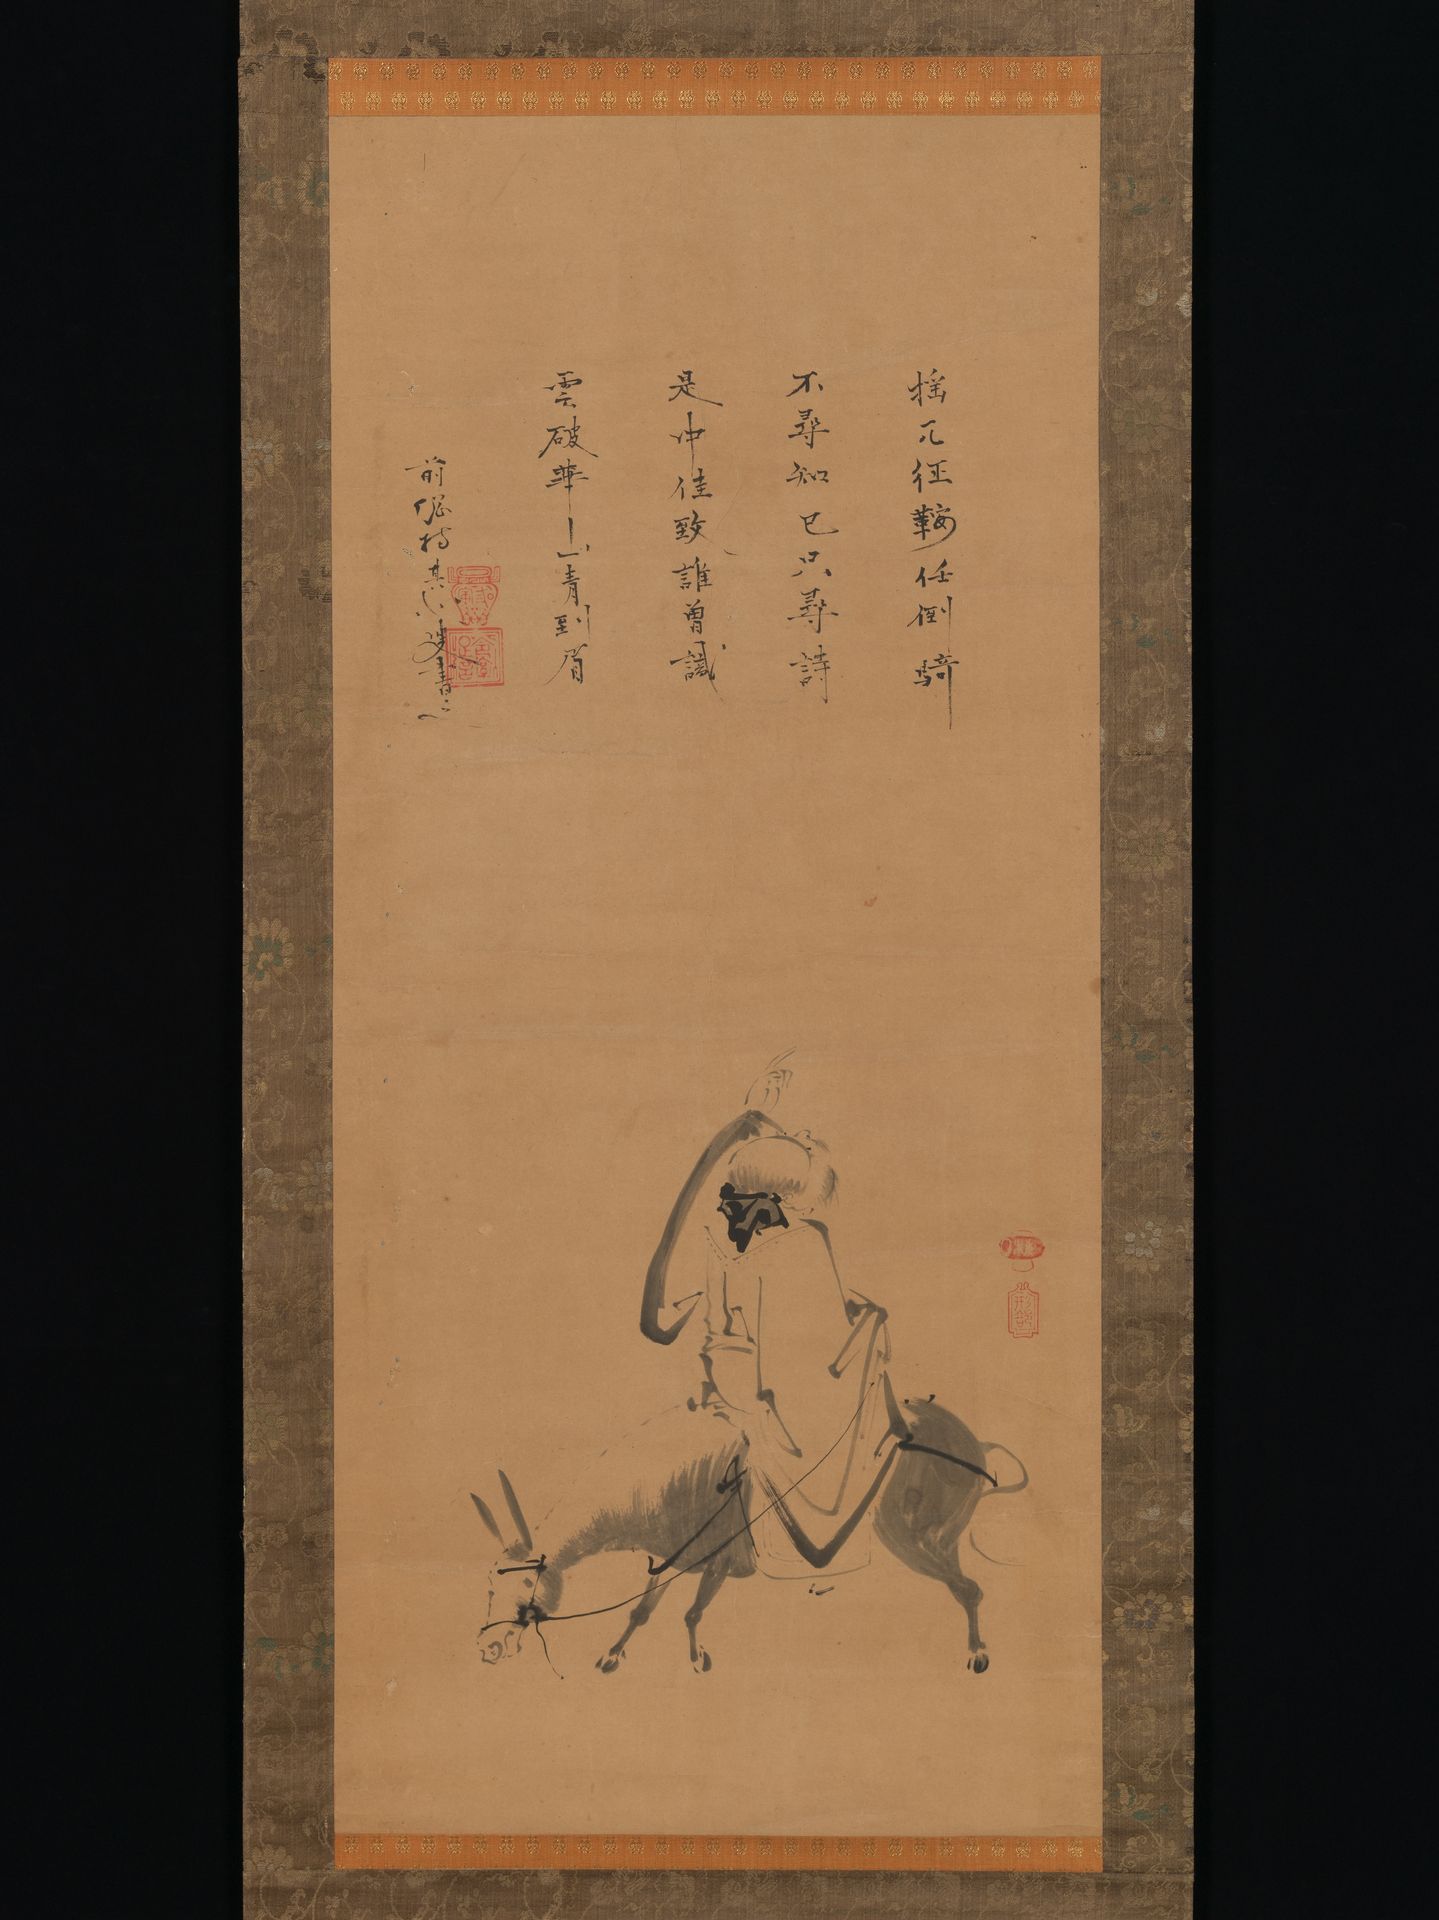 揺兀征鞍任倒騎
不尋知己只尋詩
是中佳致誰曾識
雲破華山青到眉
前 持 叟書之